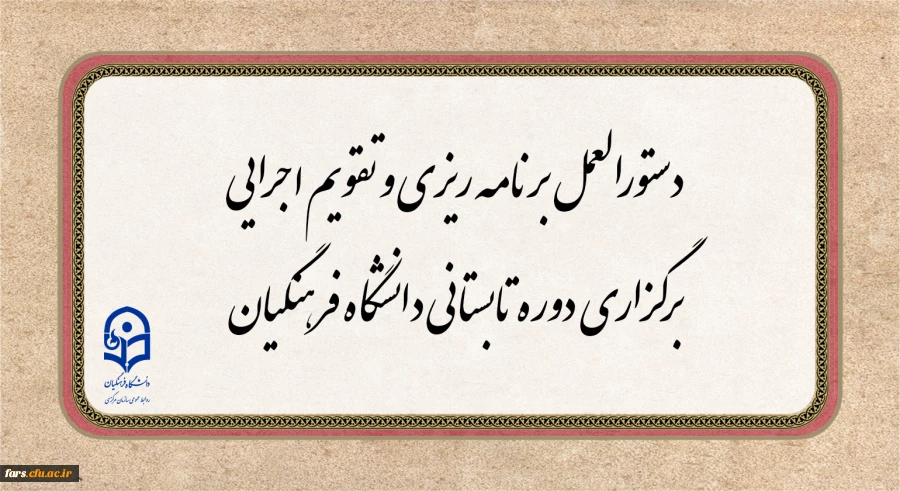 دستورالعمل برنامه ریزی و تقویم اجرایی
برگزاری دوره تابستانی دانشگاه فرهنگیان
دانشگاه فرهنگیان
روابط عمومی سازمان مرکزی
fars.cfu.ac.ir